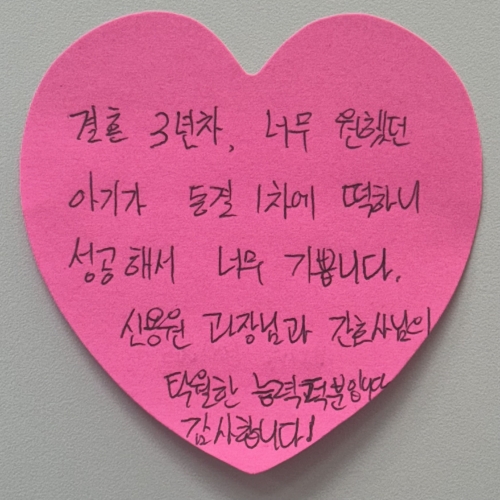 결혼 3년차, 너무 원했던
아기가 동결 1차에 떡하니
성공해서 너무 기쁩니다.
신용원 과장님과 간호사님의
탁월한 능력덕분입니다
감사합니다!